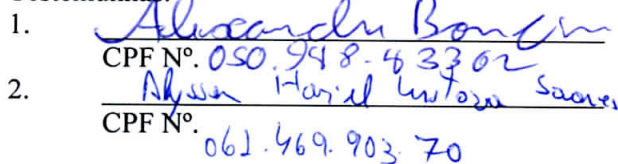 1. Alexandre Bomfim
CPF Nº. 050.948-43362
2. Alysson Soares
CPF Nº.
061.469.903.70